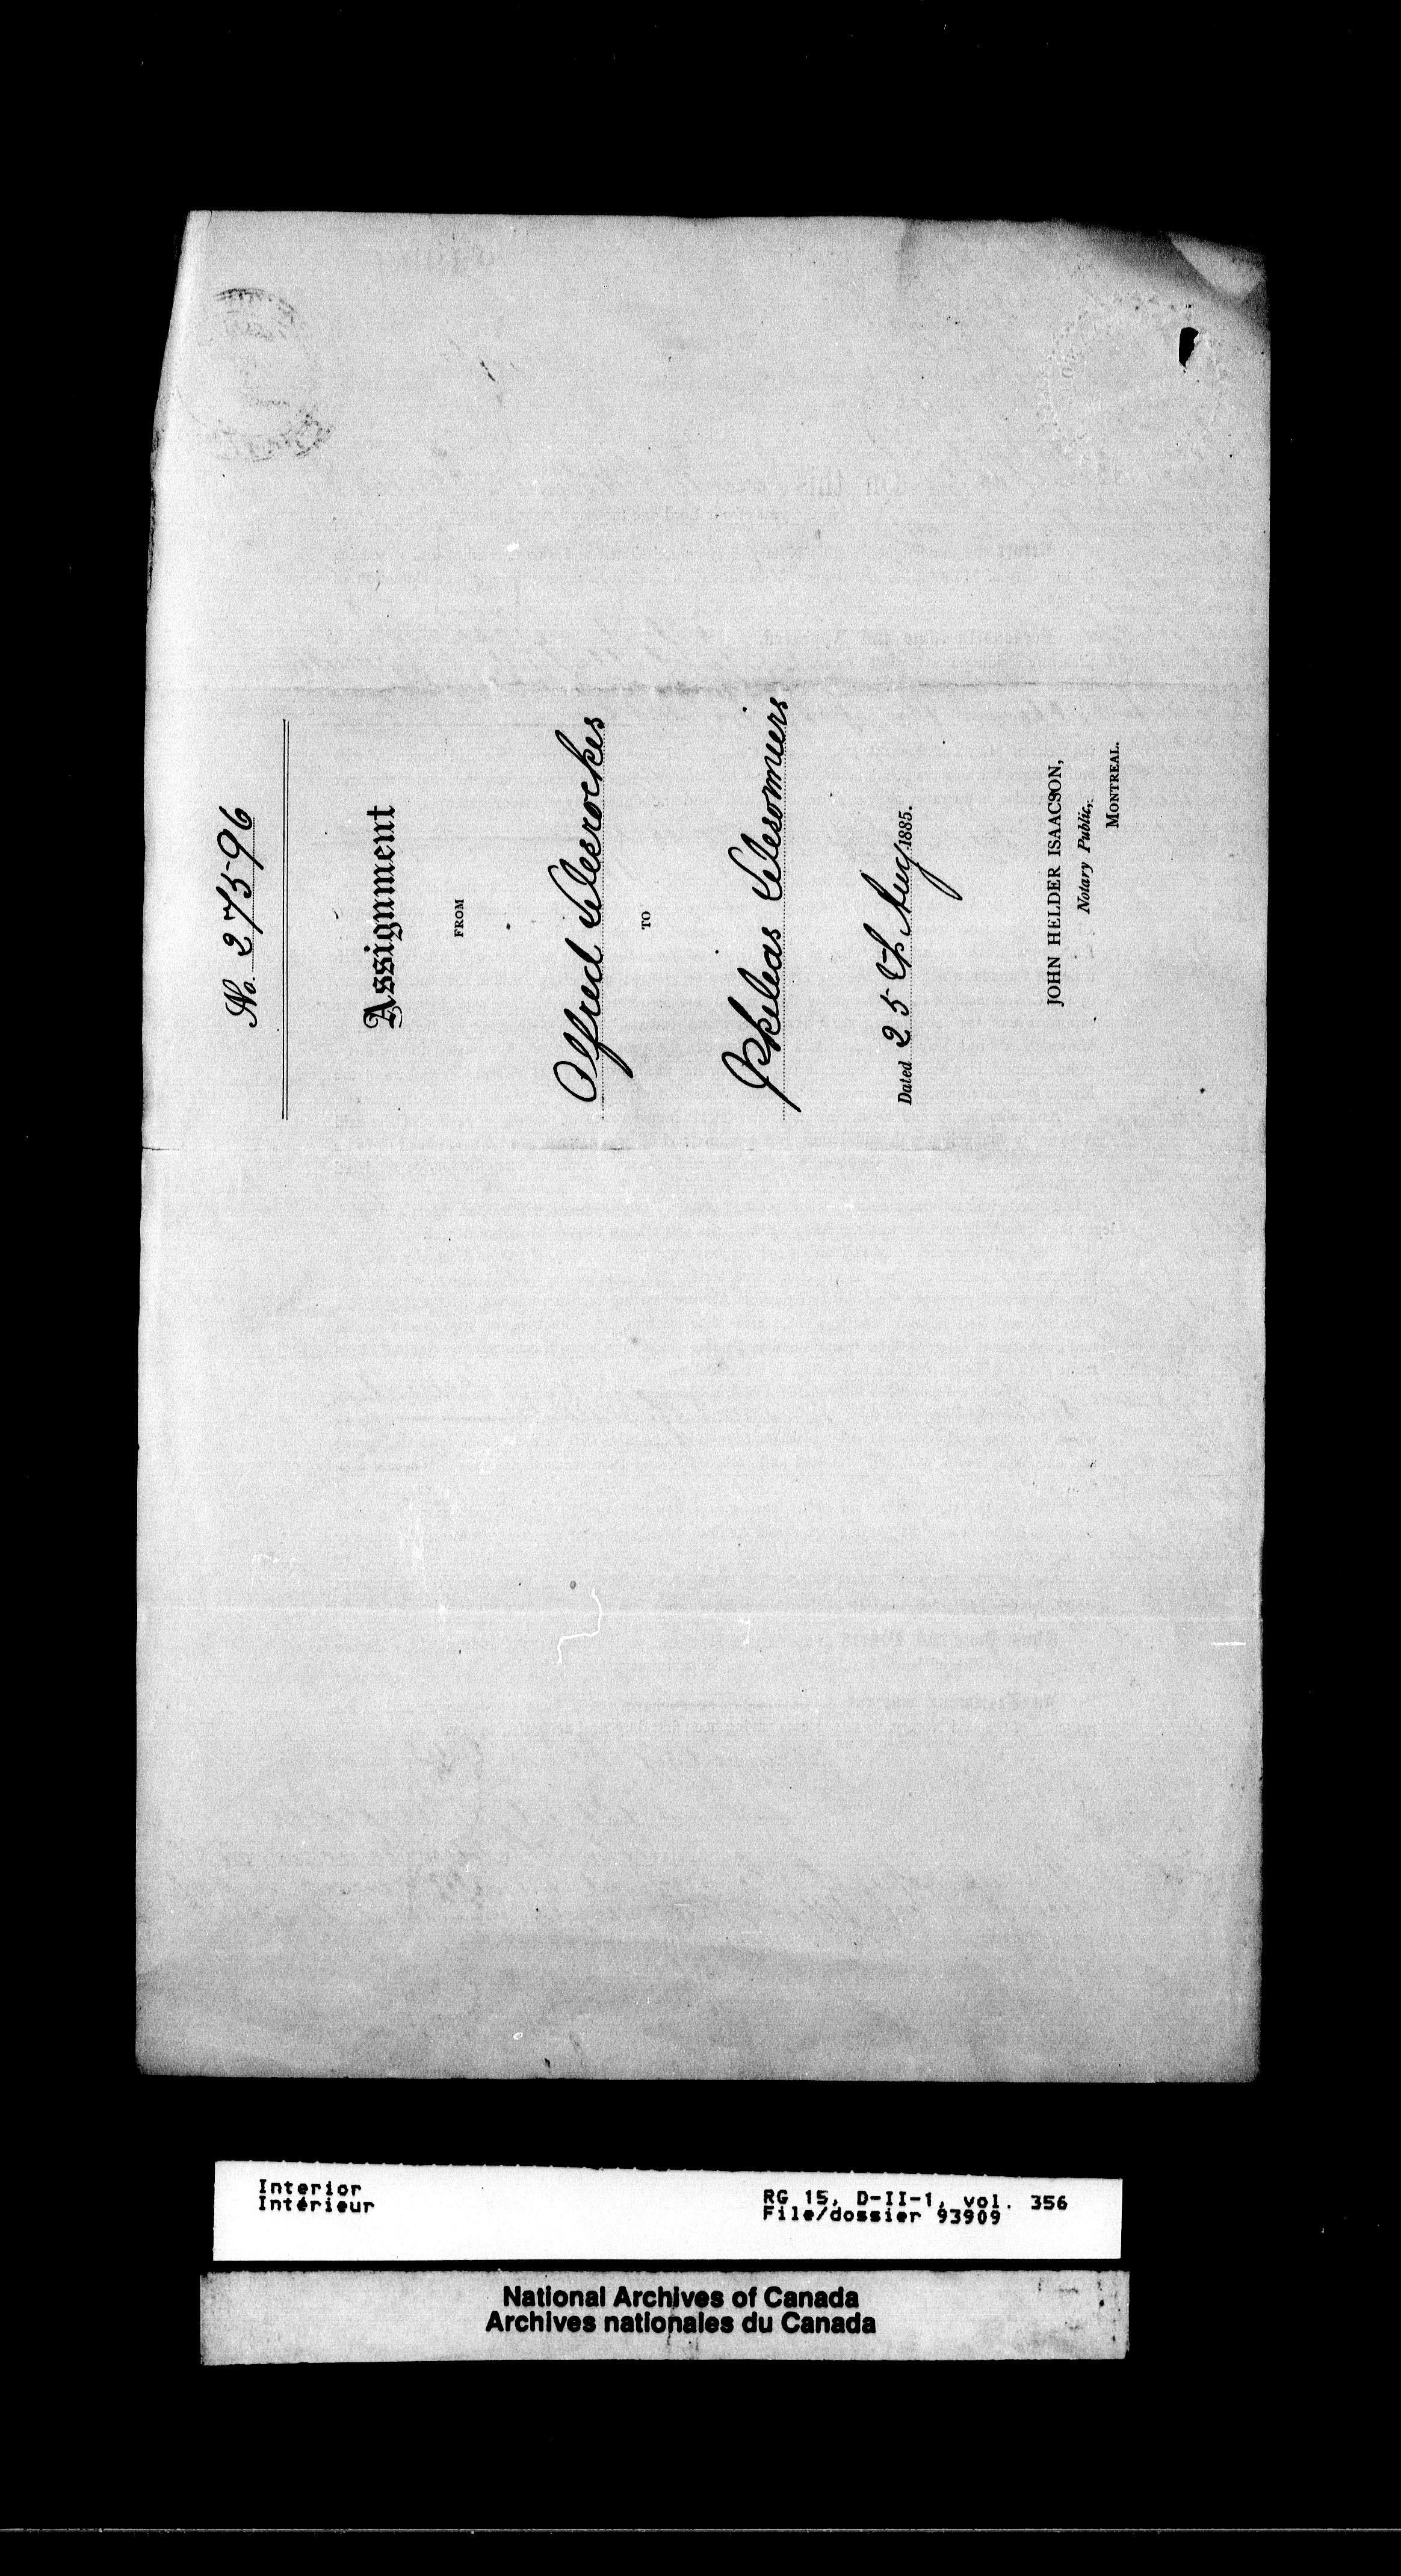 No. 27596
Assignment
FROM
Alfred Desroches
TO
Phileas Desormiers
Dated 25th Aug 1885.
JOHN HELDER ISAACSON,
Notary Public,
MONTREAL.
Interior
Intérieur
RG 15, D-II-1, vol. 356
File/dossier 93909
National Archives of Canada
Archives nationales du Canada